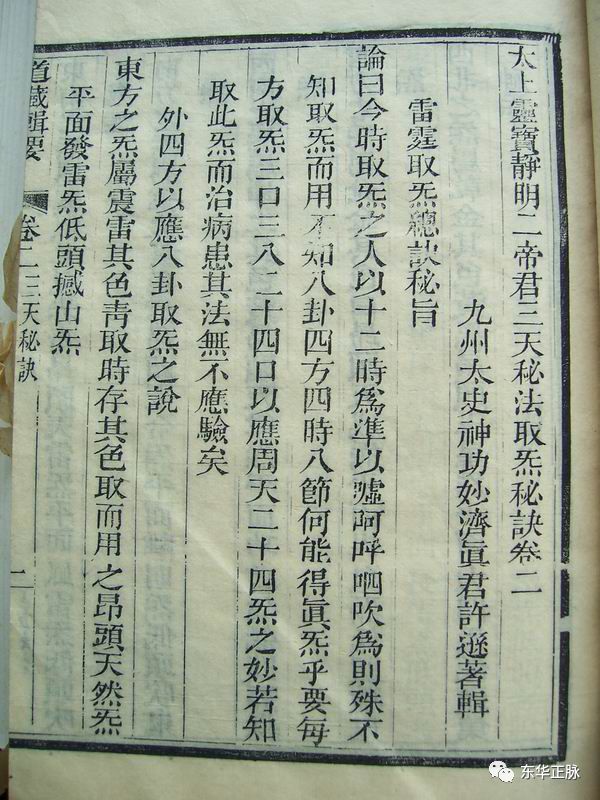 太上靈寶靜明二帝君三天秘法取炁秘訣卷二
九州太史神功妙濟眞君許遜著輯
雷霆取炁總訣秘旨
論曰今時取炁之人以十二時爲準以噓呵呼呬吹爲則殊不
知取炁而用不知八卦四方四時八節何能得眞炁乎要每
方取炁三口三八二十四口以應周天二十四炁之妙若知
取此炁而治病患其法無不應驗矣
外四方以應八卦取炁之說
東方之炁屬震雷其色靑取時存其色取而用之昂頭天然炁
平面發雷炁低頭撼山炁
道藏輯要 卷二三天秘訣 一
东华正脉